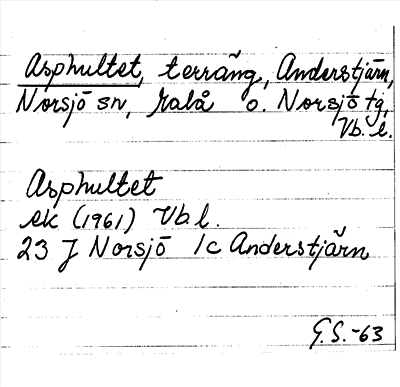 Asphultet, terräng, Anderstjärn,
Norsjö sn, Malå o. Norsjö tg,
Vb. l.
Asphultet
ek (1961) Vb l.
23 J Norsjö 1c Anderstjärn
G.S.-63